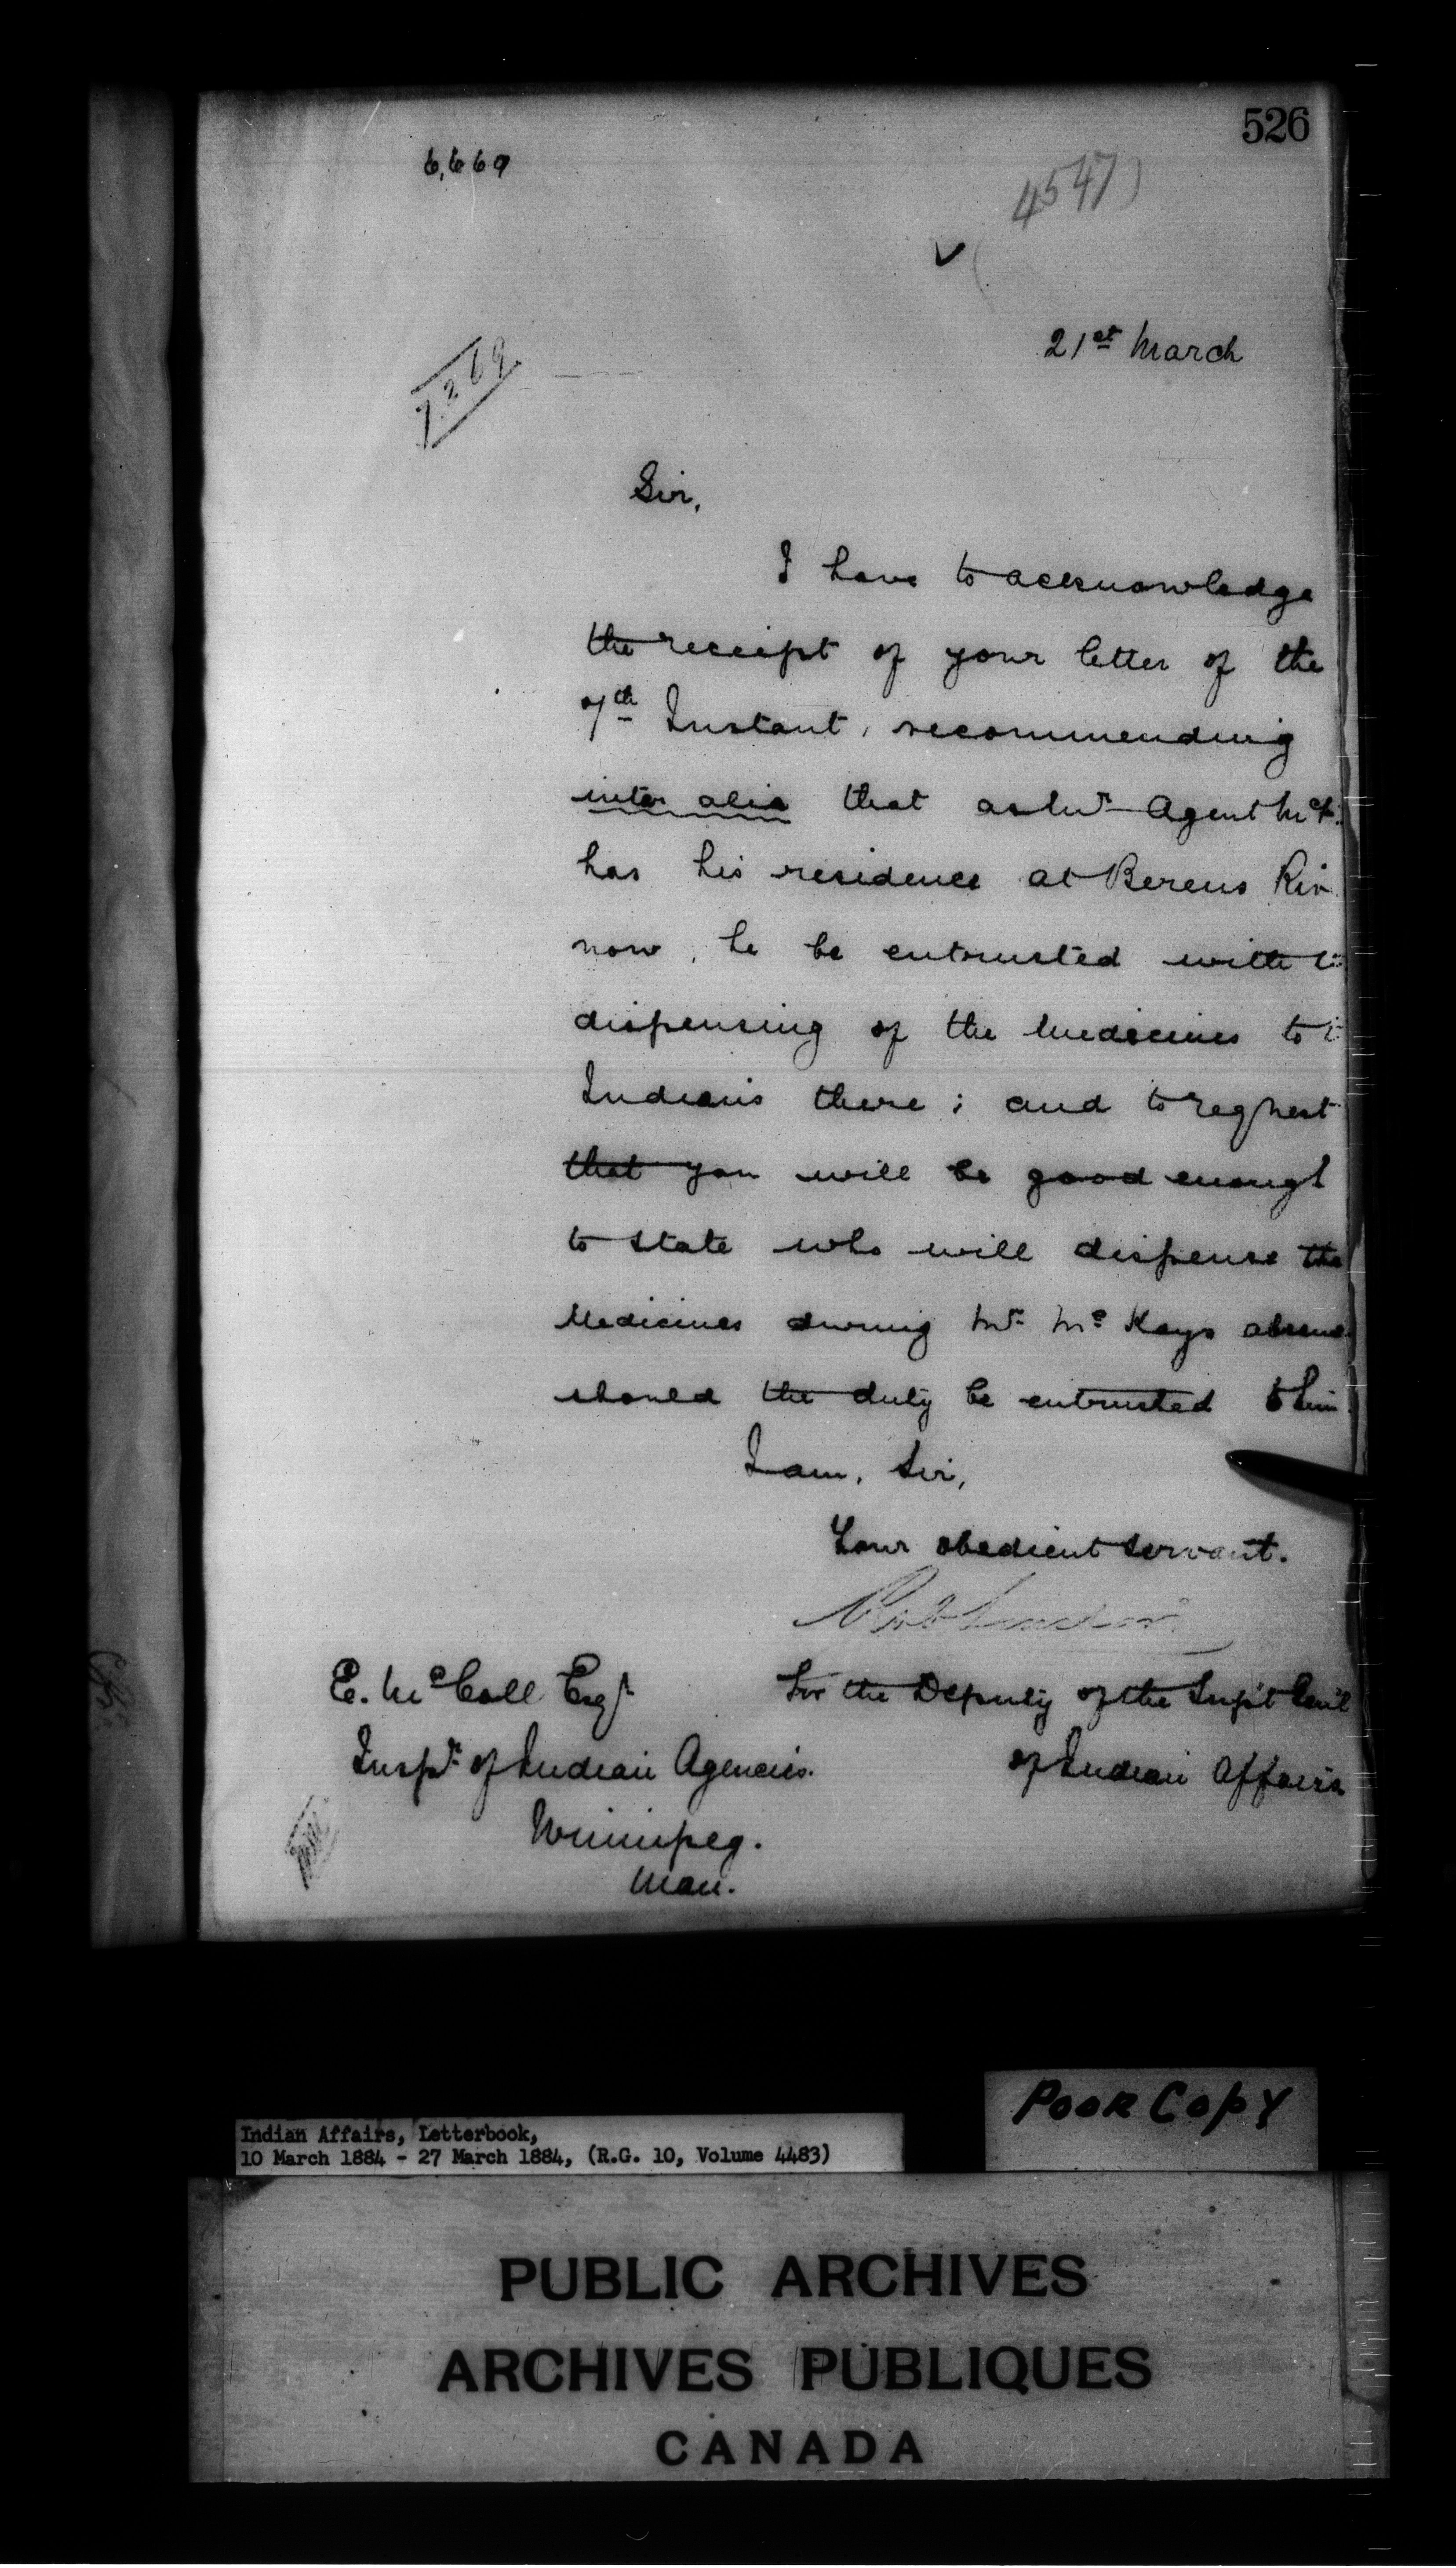 526
6,669
4547
21st March
7.269
Sir,
I have to acknowledge
the receipt of your letter of the
7th Instant, recommending
inter alia that as Mr Agent McK
has his residence at Berens Riv
now, he be entrusted with t
dispensing of the Medicines to t
Indians there; and to request
that you will be good enough
to state who will dispense the
Medicines during Mr McKays absence
should the duty be entrusted to him
I am, Sir,
Your obedient servant.
for the Deputy of the Supt Genl
of Indian Affairs
E. McColl Esqr
Inspr of Indian Agencies.
Winnipeg.
Man.
POOR COPY
Indian Affairs, Letterbook,
10 March 1884 - 27 March 1884, (R.G. 10, Volume 4483)
PUBLIC ARCHIVES
ARCHIVES PUBLIQUES
CANADA